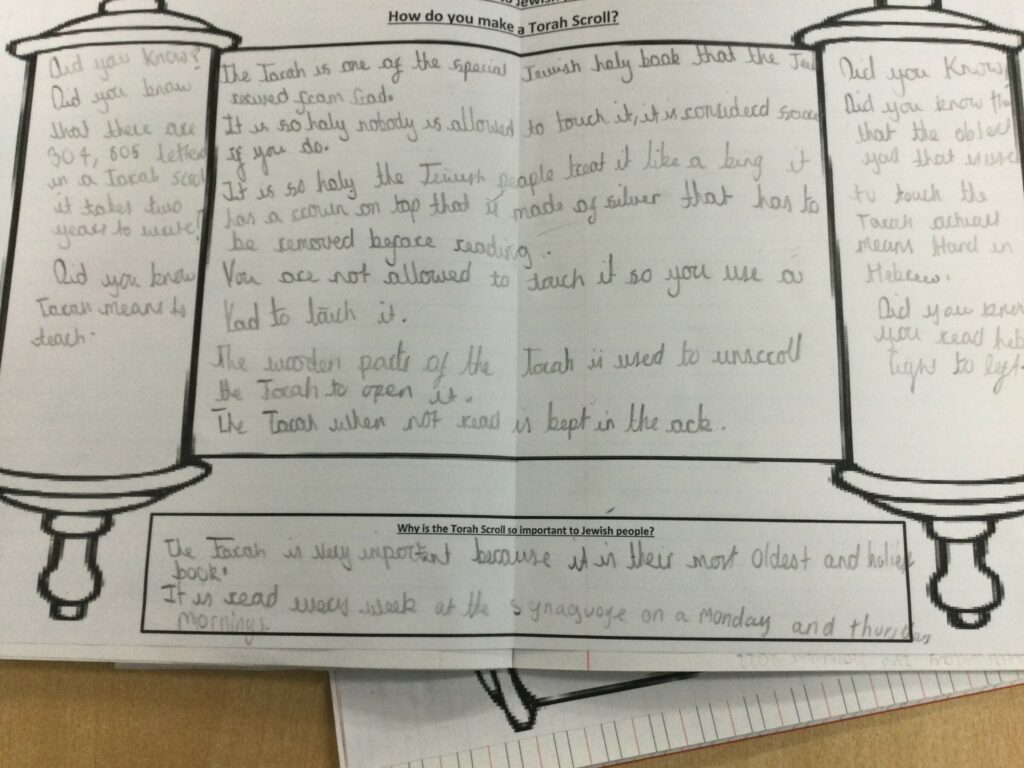 to Jewish
How do you make a Torah Scroll?
Did you know?
Did you know
that there are
304, 805 letter
in a Torah scrol
it takes two
years to write?
Did you know
Torah means to
teach.
The Torah is one of the special Jewish holy book that the Jew
recived from God.
It is so holy nobody is allowed to touch it, it is considerd
if you do.
It is so holy the Jewish people treat it like a king it
has a crown on top that is made of silver that has to
be removed before reading.
You are not allowed to touch it so you use a
Yad to touch it.
The wooden parts of the Torah is used to unscroll
the Torah to open it.
The Torah when not read is kept in the ark.
Did you Know
Did you know
that the object
yad that
to touch the
Torah actuall
means Hand in
Hebrew.
Did you know
you read heb
to left
Why is the Torah Scroll so important to Jewish people?
The Torah is very important because it is their most oldest and holies
book.
It is read every week at the synaguoge on a Monday and thursday
mornings.